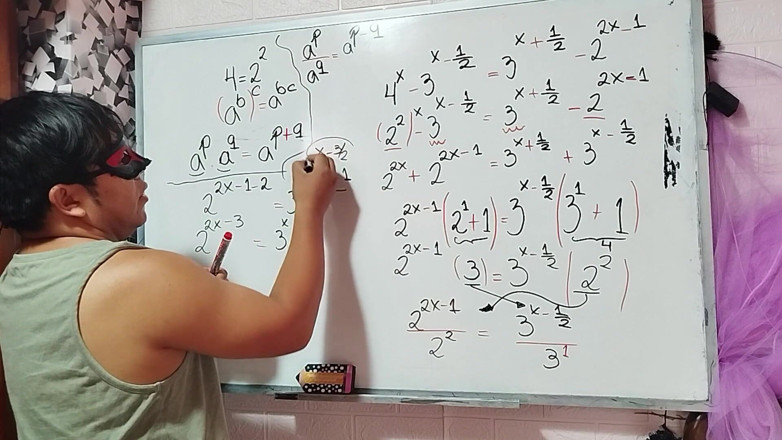 4 = 2²
(a^b)^c = a^(bc)
a^p · a^q = a^(p+q)
2^(2x-1-2) =
2^(2x-3) = 3^x
x - 3/2
a^p/a^q = a^(p-q)
4^x - 3^(x-1/2) = 3^(x+1/2) - 2^(2x-1)
(2²)^x - 3^(x-1/2) = 3^(x+1/2) - 2^(2x-1)
2^(2x) + 2^(2x-1) = 3^(x+1/2) + 3^(x-1/2)
2^(2x-1) (2^1 + 1) = 3^(x-1/2) (3^1 + 1)
4
2^(2x-1) (3) = 3^(x-1/2) (2²)
2^(2x-1)/2² = 3^(x-1/2)/3^1